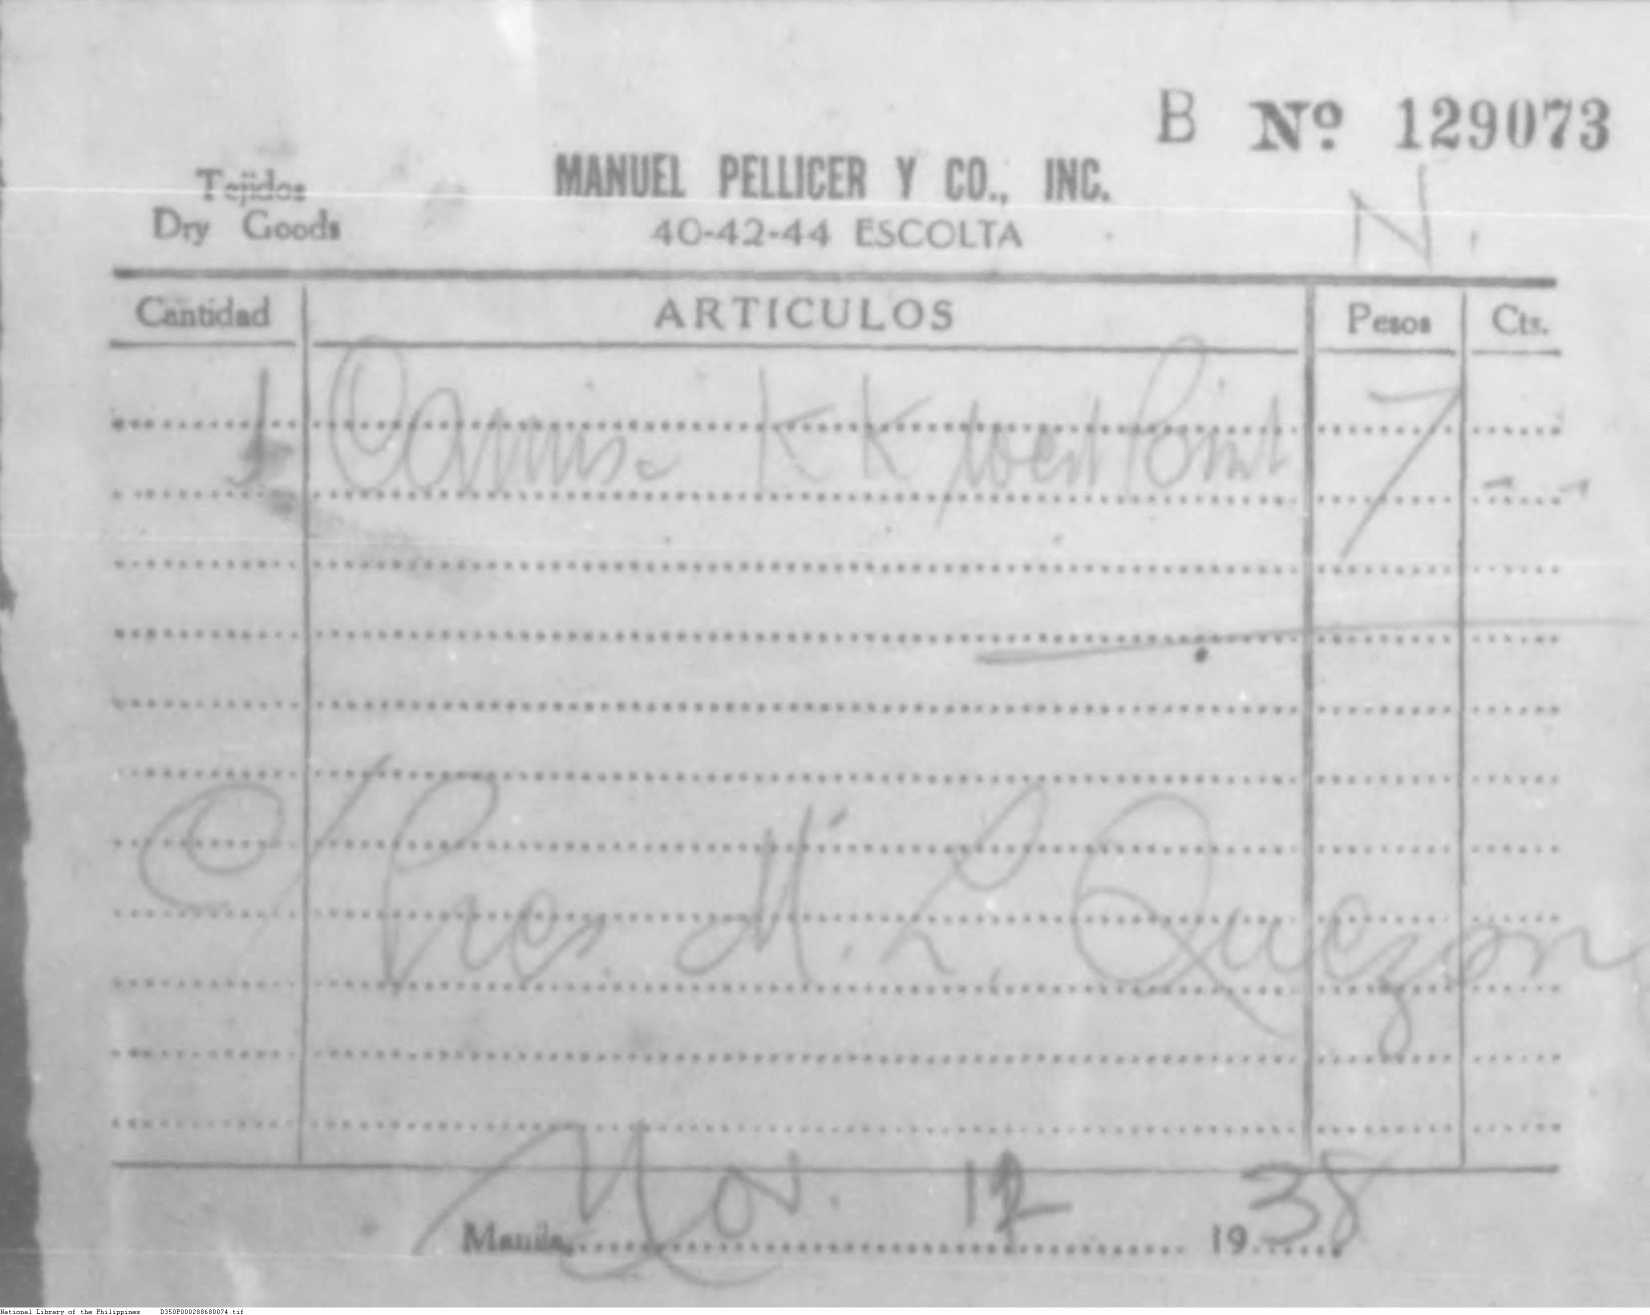 B Nº 129073
Tejidos
Dry Goods
MANUEL PELLICER Y CO., INC.
40-42-44 ESCOLTA
N.
Cantidad ARTICULOS Pesos Cts.
1 Camisa KK West Point 7 - -
C/ Pres. M. L. Quezon
Manila Nov. 12 1938
National Library of the Philippines D350P000288680074.tif